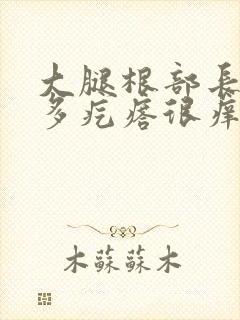 大腿根部長
多疙瘩很癢
木蘇蘇木